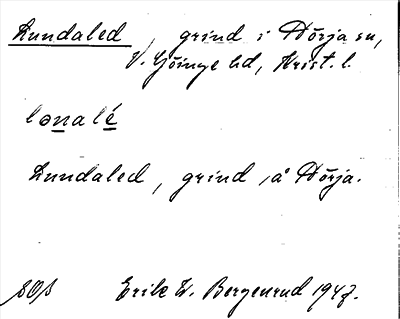 Lundaled, grind i Nörja sn,
V. Göinge hd, Krist. l.
lənalé
Lundaled, grind, å Nörja.
SOS Erik W. Bergenrud 1947.